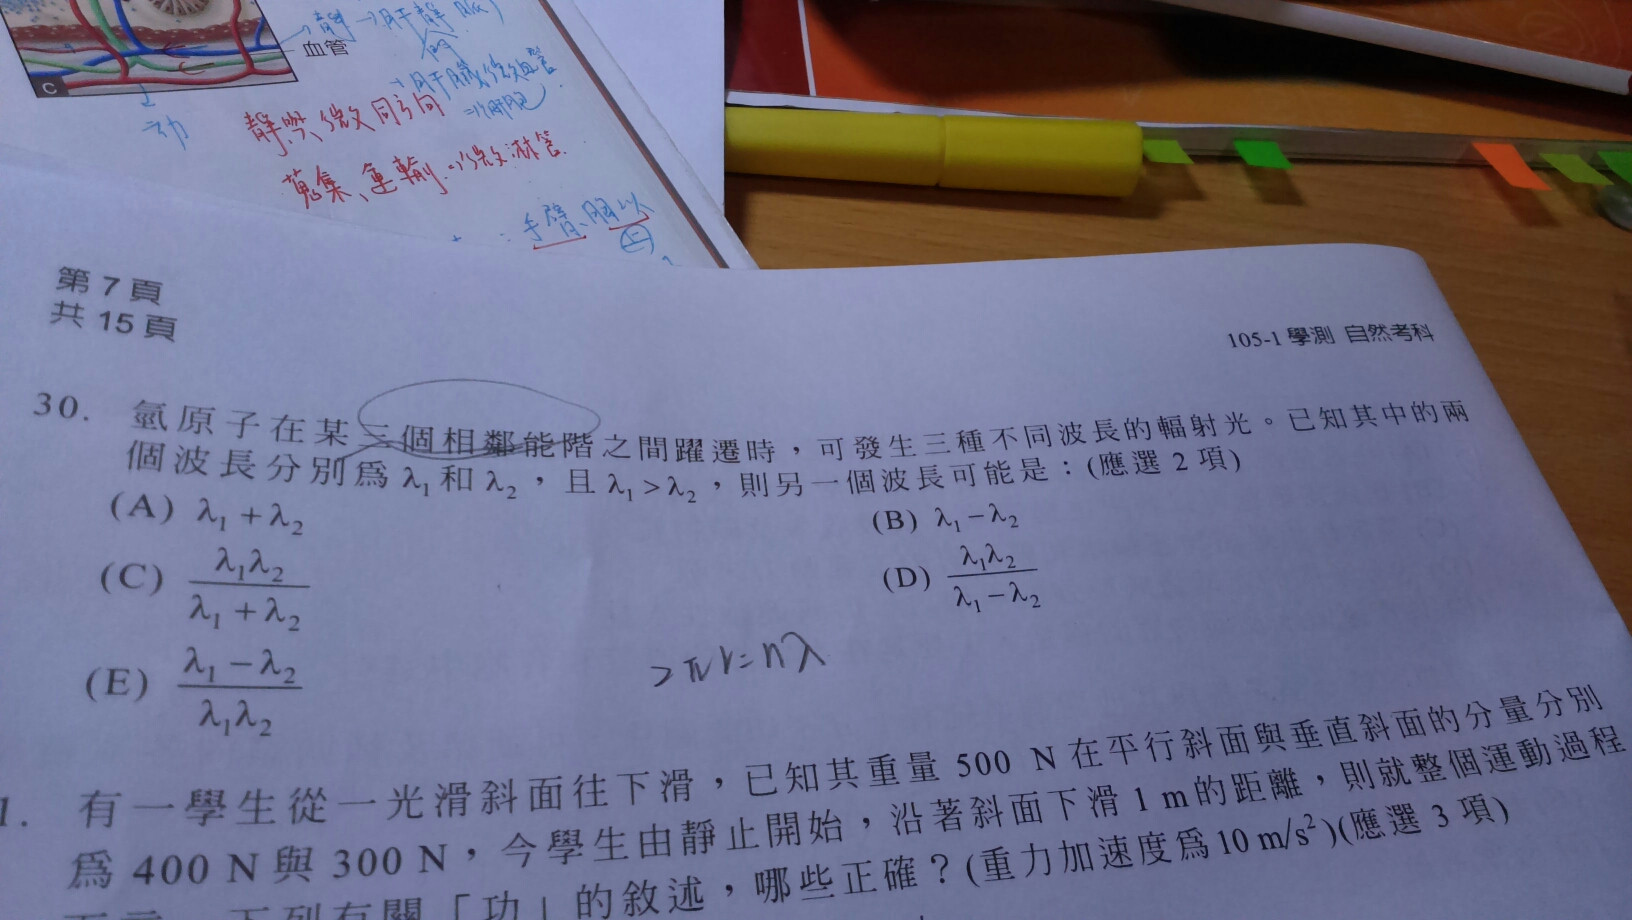 C
血管
靜
動
靜、微同方向
蒐集、運輸
手臂、胸以
上
第 7 頁
共 15 頁
105-1 學測 自然考科
30. 氫原子在某三個相鄰能階之間躍遷時，可發生三種不同波長的輻射光。已知其中的兩
個波長分別為 λ₁ 和 λ₂，且 λ₁ > λ₂，則另一個波長可能是：(應選 2 項)
(A) λ₁ + λ₂
(B) λ₁ − λ₂
(C) λ₁λ₂ / (λ₁ + λ₂)
(D) λ₁λ₂ / (λ₁ − λ₂)
(E) (λ₁ − λ₂) / λ₁λ₂
2πr = nλ
1. 有一學生從一光滑斜面往下滑，已知其重量 500 N 在平行斜面與垂直斜面的分量分別
為 400 N 與 300 N，今學生由靜止開始，沿著斜面下滑 1 m 的距離，則就整個運動過程
下列有關「功」的敘述，哪些正確？(重力加速度為 10 m/s²)(應選 3 項)